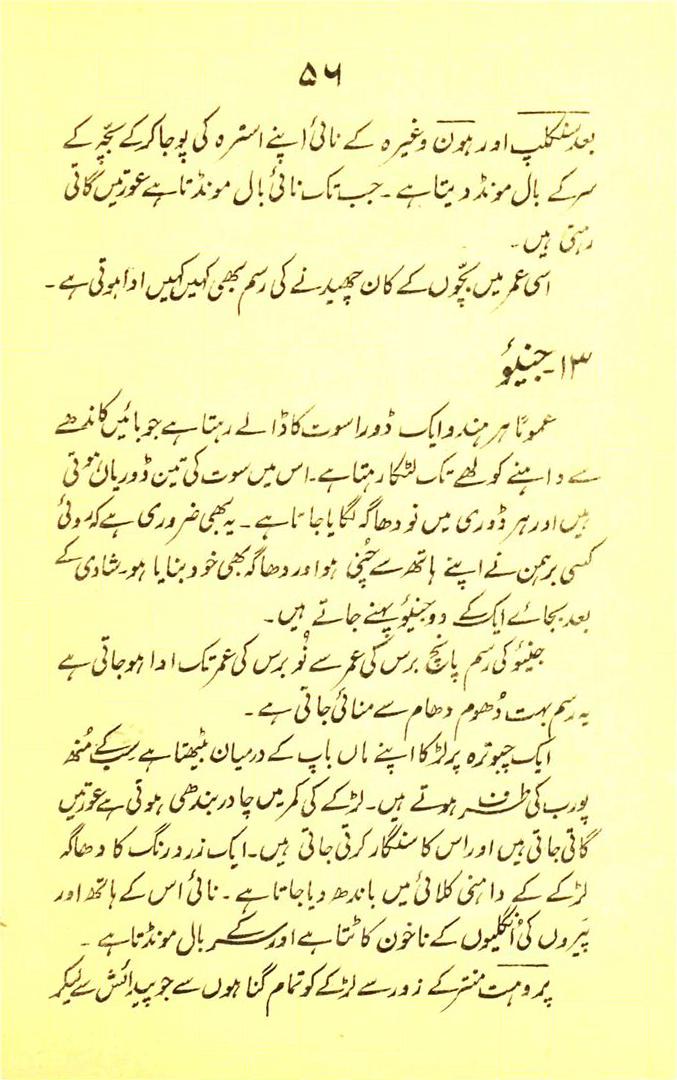 ۵۶
بعد سنکلپ اور ہون وغیرہ کے نائی اپنے استرہ کی پوجا کرکے بچّہ کے
سر کے بال مونڈ دیتا ہے ۔ جب تک نائی بال مونڈتا ہے عورتیں گاتی
رہتی ہیں۔
اسی عمر میں بچّوں کے کان چھیدنے کی رسم بھی کہیں کہیں ادا ہوتی ہے۔
۱۳۔ جنیئو
عموماً ہر ہندو ایک ڈورا سوت کا ڈالے رہتا ہے جو بائیں کاندھے
سے داہنے کولھے تک لٹکا رہتا ہے۔ اس میں سوت کی تین ڈوریاں ہوتی
ہیں اور ہر ڈوری میں نو دھاگہ لگایا جاتا ہے۔ یہ بھی ضروری ہے کہ روئی
کسی برہمن نے اپنے ہاتھ سے چُنی ہو اور دھاگہ بھی خود بنایا ہو۔ شادی کے
بعد بجائے ایک کے دو جنیئو پہنے جاتے ہیں۔
جنیئو کی رسم پانچ برس کی عمر سے نُو برس کی عمر تک ادا ہو جاتی ہے
یہ رسم بہت دُھوم دھام سے منائی جاتی ہے۔
ایک چبوترہ پر لڑکا اپنے ماں باپ کے درمیان بیٹھتا ہے سب کے مُنھ
پورب کی طرف ہوتے ہیں۔ لڑکے کی کمر میں چادر بندھی ہوتی ہے عورتیں
گاتی جاتی ہیں اور اس کا سنگار کرتی جاتی ہیں۔ ایک زرد رنگ کا دھاگہ
لڑکے کے داہنی کلائی میں باندھ دیا جاتا ہے ۔ نائی اس کے ہاتھ اور
پَیروں کی اُنگلیوں کے ناخون کاٹتا ہے اور سر کے بال مونڈتا ہے ۔
پروہت منتر کے زور سے لڑکے کو تمام گناہوں سے جو پیدائش سے لیکر